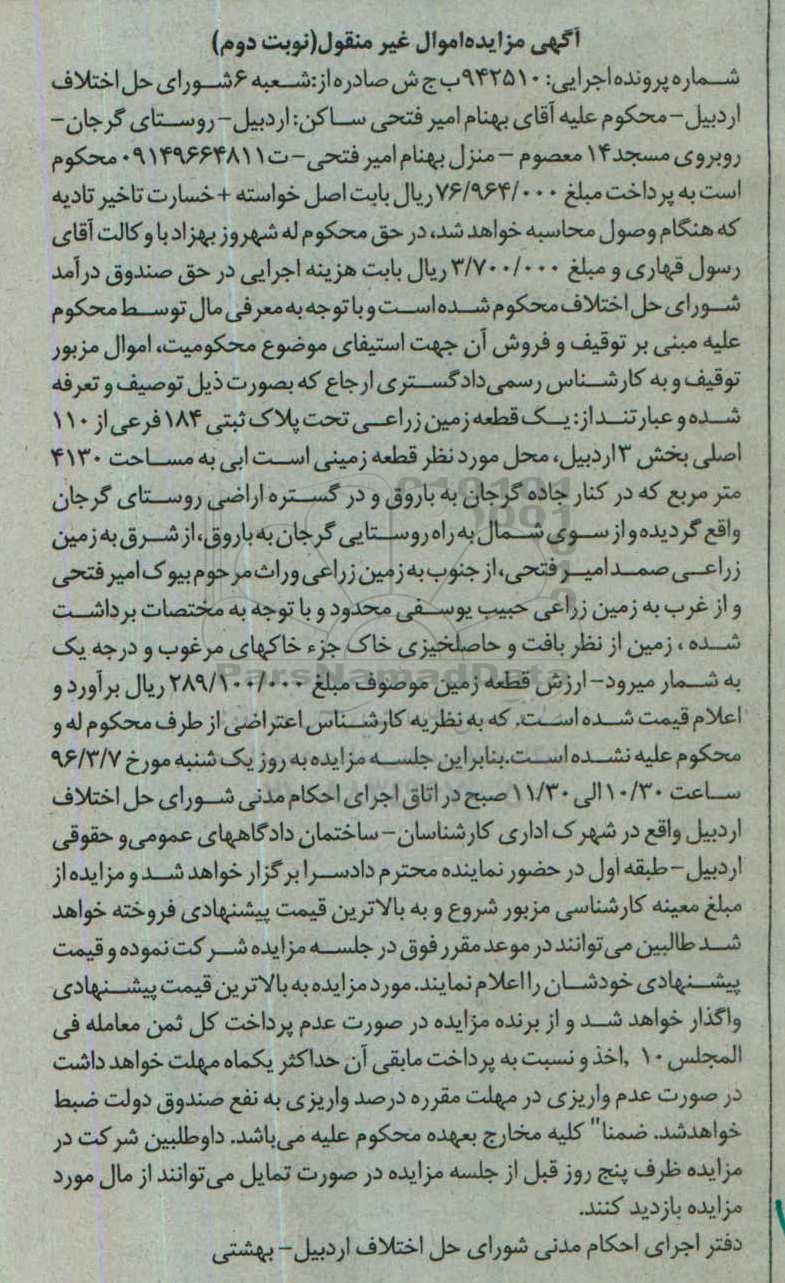 آگهی مزایده‌اموال غیر منقول(نوبت دوم)
شماره پرونده اجرایی: ۹۴۲۵۱۰ب ج ش صادره از:شعبه ۶شورای حل اختلاف
اردبیل-محکوم علیه آقای بهنام امیر فتحی ساکن: اردبیل- روستای گرجان-
روبروی مسجد۱۴ معصوم - منزل بهنام امیر فتحی-ت۰۹۱۴۹۶۶۴۸۱۱ محکوم
است به پرداخت مبلغ ۷۶/۹۶۴/۰۰۰ریال بابت اصل خواسته +خسارت تاخیر تادیه
که هنگام وصول محاسبه خواهد شد، در حق محکوم له شهروز بهزاد با وکالت آقای
رسول قهاری و مبلغ ۳/۷۰۰/۰۰۰ ریال بابت هزینه اجرایی در حق صندوق درآمد
شورای حل اختلاف محکوم شده است و با توجه به معرفی مال توسط محکوم
علیه مبنی بر توقیف و فروش آن جهت استیفای موضوع محکومیت، اموال مزبور
توقیف و به کارشناس رسمی‌دادگستری ارجاع که بصورت ذیل توصیف و تعرفه
شده و عبارتند از: یک قطعه زمین زراعی تحت پلاک ثبتی ۱۸۴ فرعی از ۱۱۰
اصلی بخش ۳ اردبیل، محل مورد نظر قطعه زمینی است ابی به مساحت ۴۱۳۰
متر مربع که در کنار جاده گرجان به باروق و در گستره اراضی روستای گرجان
واقع گردیده و از سوی شمال به راه روستایی گرجان به باروق، از شرق به زمین
زراعی صمد امیر فتحی، از جنوب به زمین زراعی وراث مرحوم بیوک امیر فتحی
و از غرب به زمین زراعی حبیب یوسفی محدود و با توجه به مختصات برداشت
شده ، زمین از نظر بافت و حاصلخیزی خاک جزء خاکهای مرغوب و درجه یک
به شمار میرود- ارزش قطعه زمین موصوف مبلغ ۲۸۹/۱۰۰/۰۰۰ ریال برآورد و
اعلام قیمت شده است. که به نظریه کارشناس اعتراضی از طرف محکوم له و
محکوم علیه نشده است.بنابراین جلسه مزایده به روز یک شنبه مورخ ۹۶/۳/۷
ساعت ۱۰/۳۰ الی ۱۱/۳۰ صبح در اتاق اجرای احکام مدنی شورای حل اختلاف
اردبیل واقع در شهرک اداری کارشناسان-ساختمان دادگاههای عمومی‌و حقوقی
اردبیل-طبقه اول در حضور نماینده محترم دادسرا برگزار خواهد شد و مزایده از
مبلغ معینه کارشناسی مزبور شروع و به بالاترین قیمت پیشنهادی فروخته خواهد
شد طالبین می‌توانند در موعد مقرر فوق در جلسه مزایده شرکت نموده و قیمت
پیشنهادی خودشان را اعلام نمایند. مورد مزایده به بالاترین قیمت پیشنهادی
واگذار خواهد شد و از برنده مزایده در صورت عدم پرداخت کل ثمن معامله فی
المجلس ۱۰ ٫اخذ و نسبت به پرداخت مابقی آن حداکثر یکماه مهلت خواهد داشت
در صورت عدم واریزی در مهلت مقرره درصد واریزی به نفع صندوق دولت ضبط
خواهدشد. ضمنا" کلیه مخارج بعهده محکوم علیه می‌باشد. داوطلبین شرکت در
مزایده ظرف پنج روز قبل از جلسه مزایده در صورت تمایل می‌توانند از مال مورد
مزایده بازدید کنند.
دفتر اجرای احکام مدنی شورای حل اختلاف اردبیل- بهشتی
ParsNamadData